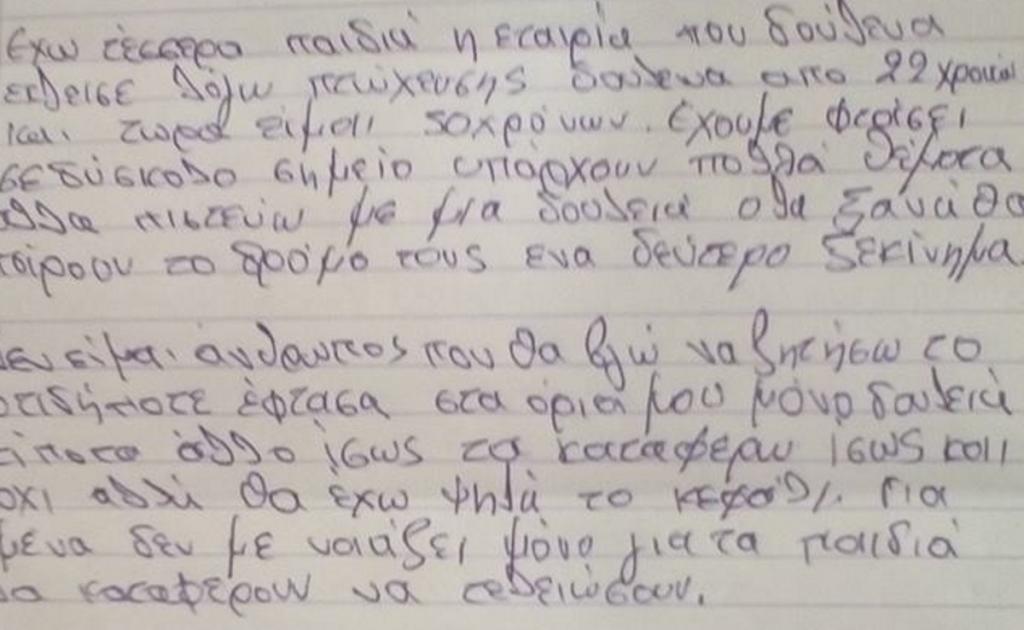 Εχω τέσσερα παιδιά η εταιρία που δούλευα
εκλεισε λόγω πτώχευσης δουλευα απο 22 χρονών
και τωρα ειμαι 50χρόνων. Εχουμε φτάσει
σε δύσκολο σημείο υπάρχουν πολλά θέματα
αλλα πιστεύω με μια δουλειά ολα ξανά θα
πάρουν το δρόμο τους ενα δεύτερο ξεκίνημα.
δεν ειμαι άνθρωπος που θα βγώ να ζητήσω το
οτιδήποτε έφτασα στα όρια μου μόνο δουλειά
τίποτα άλλο ίσως τα καταφέρω ίσως και
οχι αλλά θα έχω ψηλά το κεφάλι. Για
μενα δεν με νοιάζει μόνο για τα παιδιά
να καταφέρουν να τελειώσουν.